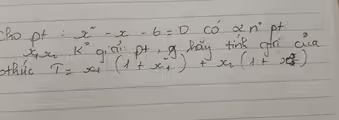 cho pt : x² - x - 6 = 0 có 2 nº pt
x₁ x₂ Kº giải pt, hãy tính giá trị của
thức T = x₁ (1 + x₁) + x₂ (1 + x₂)